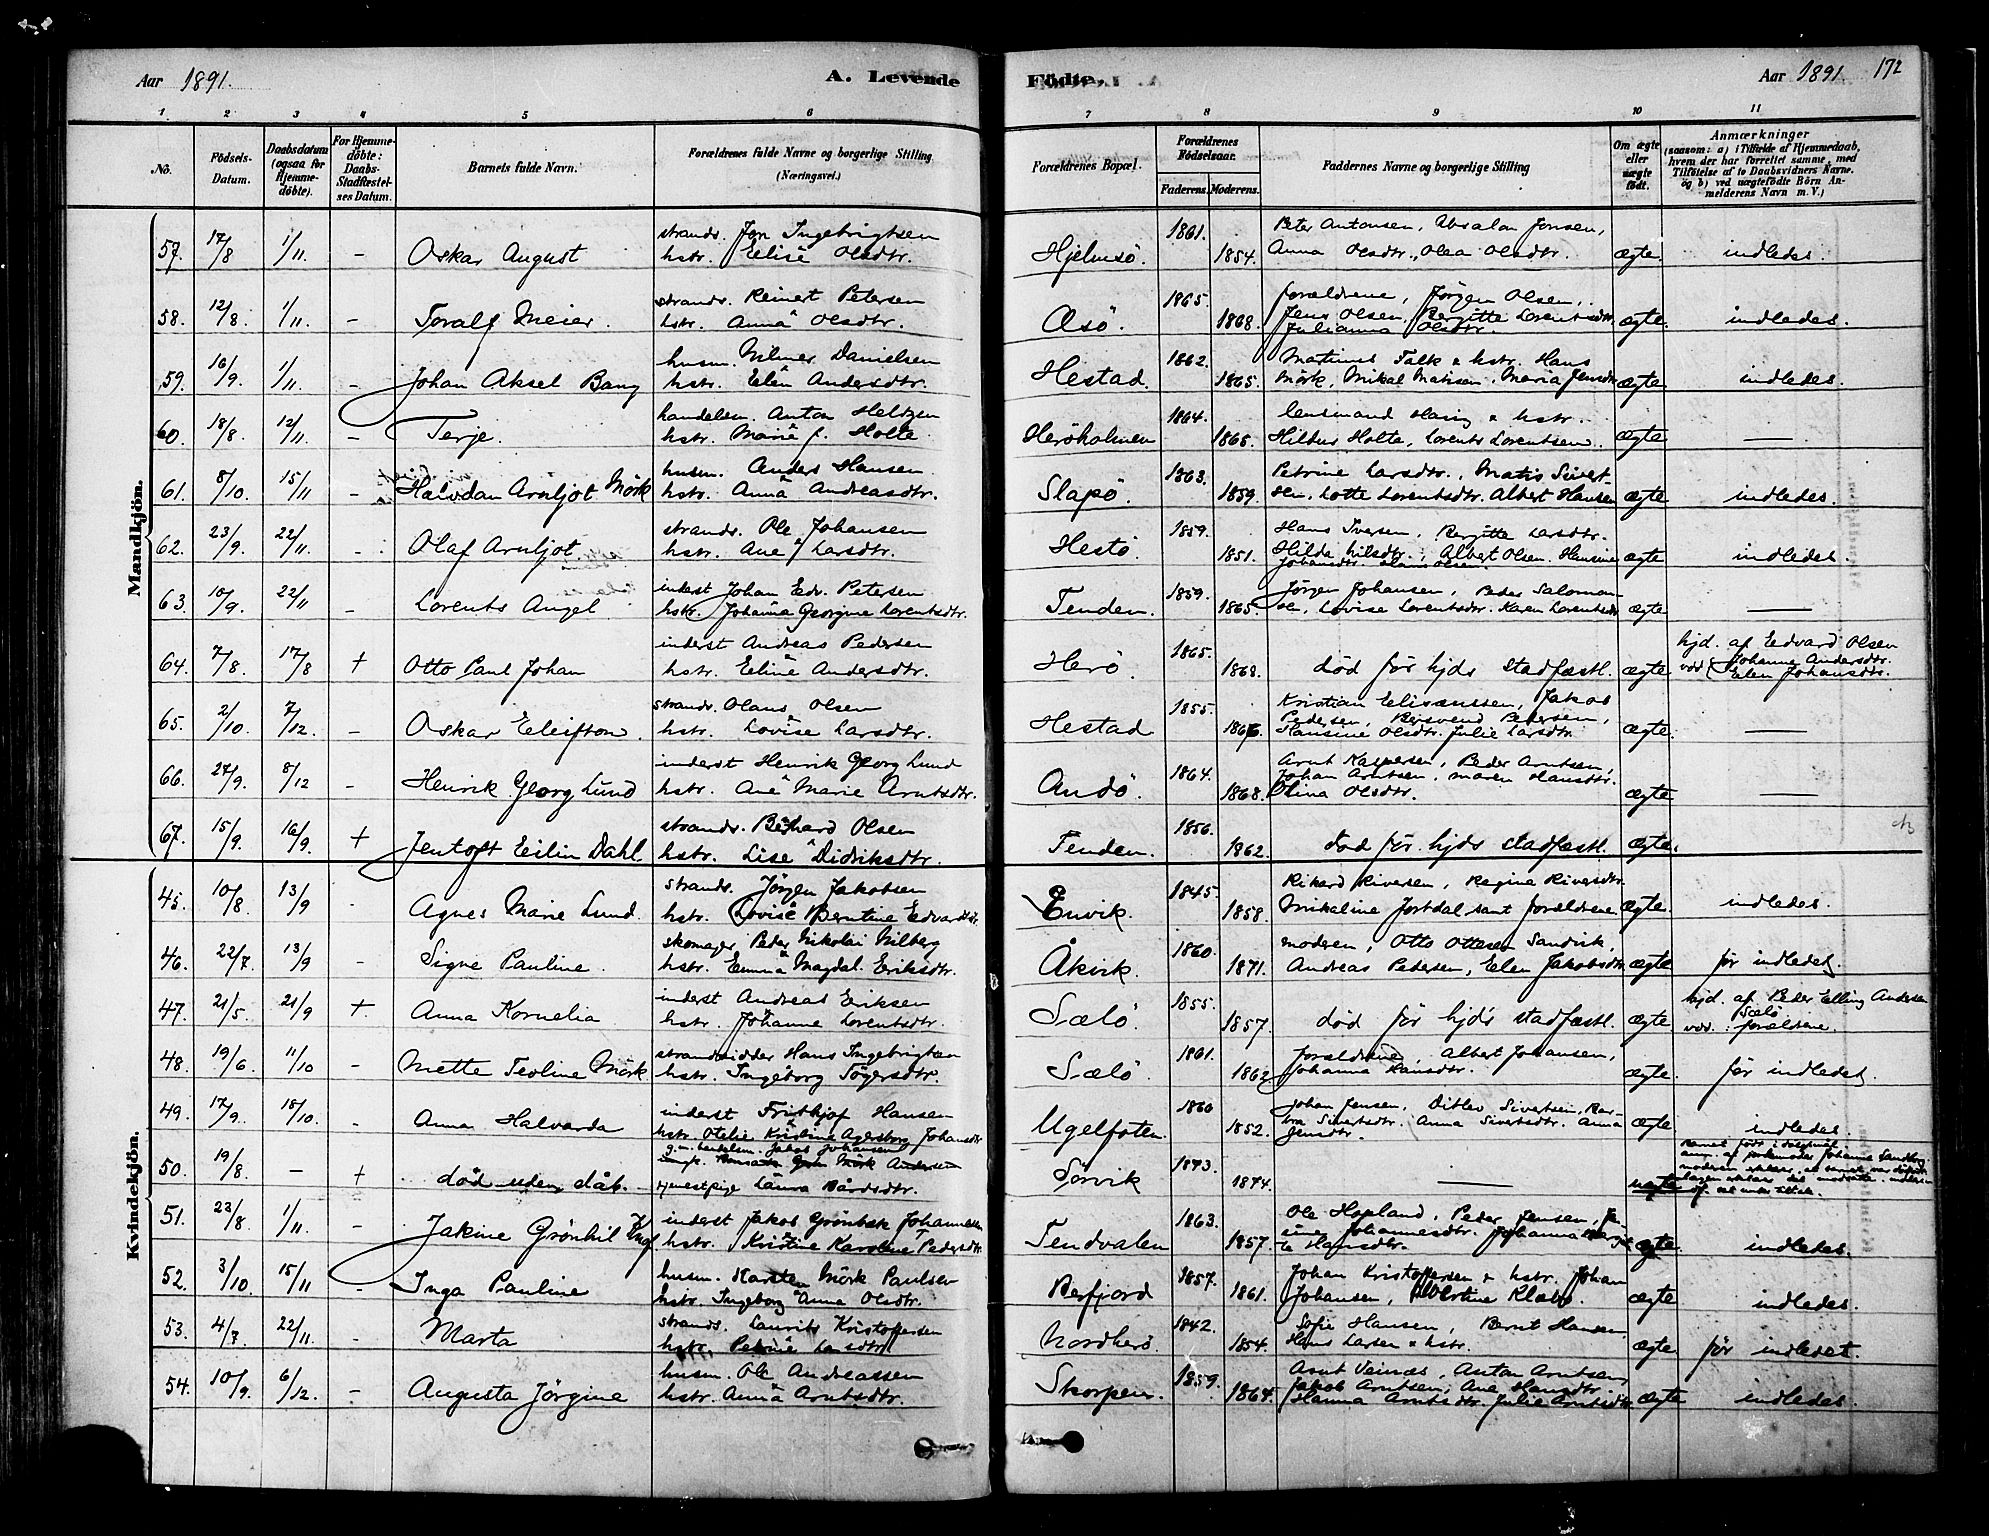 Aar 1891. A. Levende Födte. Aar 1891. 172
1 2 3 4 5 6 7 8 9 10 11
No.
Födsels-Datum.
Daabsdatum (ogsaa for Hjemme-döbte).
For Hjemme-döbte: Daabs-Stadfæstel-ses Datum.
Barnets fulde Navn.
Forældrenes fulde Navne og borgerlige Stilling (Næringsvei.)
Forældrenes Bopæl.
Forældrenes Födselsaar. Faderens. Moderens.
Faddernes Navne og borgerlige Stilling
Om ægte eller uægte födt.
Anmærkninger
(saasom: a) i Tilfælde af Hjemmedaab, hvem der har forrettet samme, med Tilföielse af to Daabsvidners Navne. og b) ved uægtefödte Börn An-melderens Navn m. V.)
Mandkjön.
57. 17/8 1/11. - Oskar August strands. Jon Ingebrigtsen hstr. Elise Olsdtr. Hjelmsö. 1861. 1854. Peter Antonsen, Absalon Jonsen, Anna Olsdtr., Olea Olsdtr. ægte indledes.
58. 12/8. 1/11. - Toralf Meier. strands. Reinert Petersen hstr. Anna Olsdtr. Æsö. 1865. 1868. forældrene, Jörgen Olsen, Jens Olsen, Bergitte Lorentsdtr. Julianna Olsdtr. ægte. indledes.
59. 16/9. 1/11. - Johan Aksel Bang husm. Vilmer Danielsen hstr. Elen Andersdtr. Hestad. 1862. 1865. Martinus Falk & hstr. Hans Mörk, Mikal Matisen, Maria Jensdtr ægte indledes.
60. 18/8. 12/11. - Terje. handelsm. Anton Heltzen hstr. Marie f. Holte. Heröholmen 1864. 1868. lensmand & hstr. Hildur Holte, Lorents Lorentsen. ægte —
61. 8/10. 15/11 - Halvdan Arnljot Mörk husm. Anders Hansen hstr. Anna Andreasdtr. Slapö. 1863. 1859. Petrine Larsdtr., Matis Sivert-sen, Lotte Lorentsdtr. Albert Hansen ægte indledes.
62. 23/9. 22/11. - Olaf Arnljot strands. Ole Johansen hstr. Ane Larsdtr. Hestö. 1859. 1851. Hans Iversen, Bergitte Larsdtr. Hilda Nilsdtr., Albert Olsen. Hansine Johansdtr. ægte indledes.
63. 10/9. 22/11 - Lorents Angel inderst Johan Edv. Petersen hstr. Johanna Georgine Lorentsdtr. Tenden. 1859. 1865. Jörgen Johansen, Peder Salomon-sen, Lovise Lorentsdtr. Karen Lorentsdtr ægte —
64. 7/8. 17/8 + Otto Paul Johan inderst Andreas Pedersen hstr. Eline Andersdtr. Herö. 1865. 1868. död för hjds stadfæstl. ægte hjd. af Edvard Olsen vid. Johanna Andersdtr. Elen Johansdtr.
65. 2/10. 7/12. - Oskar Eleifton. strands. Olaus Olsen hstr. Lovise Larsdtr. Hestad 1855. 1866. Kristian Elisæussen, Jakob Pedersen, Bersvend Pedersen, Hansine Olsdtr. Julie Larsdtr. ægte. —
66. 27/9. 8/12 - Henrik Georg Lund inderst Henrik Georg Lund hstr. Ane Marie Arntsdtr. Andö. 1864. 1868. Arnt Kaspersen, Peder Arntsen, Johan Arntsen, Maren Hansdtr. Olina Olsdtr. ægte —
67. 15/9. 16/9. + Jentoft Eilin Dahl strands. Berhard Olsen hstr. Lise Didriksdtr. Tenden. 1856. 1862. död för hjds stadfæstl. ægte.
Kvindekjön.
45. 10/8. 13/9 - Agnes Marie Lund. strands. Jörgen Jakobsen hstr. Lovise Berntine Edvardsdtr. Envik. 1845. 1858. Rikard Riversen, Regine Riversdtr. Mikaline Jortdal samt forældrene ægte. indledes.
46. 22/7 13/9 - Signe Pauline. skomager Peder Nikolai Nilberg hstr. Emma Magdal. Eriksdtr. Åkvik. 1860. 1871. moderen, Otto Ottesen Sandvik, Andreas Pedersen, Elen Jakobsdtr ægte för indledet.
47. 21/5. 21/9 + Anna Kornelia inderst Andreas Eriksen hstr. Johanna Lorentsdtr. Sælö. 1855. 1857. död för hjds stadfæstl. ægte hjd. af Peder Elling Andersen Sælö vid. : forældrene.
48. 19/6. 11/10 - Mette Teoline Mörk strandsidder Hans Ingebrigtsen hstr. Ingeborg Sögersdtr. Sælö 1861. 1862 forældrene, Albert Johansen, Johanna Hansdtr. ægte. för indledet.
49. 17/9. 18/10. - Anna Halvarda inderst Frithjof Hansen hstr. Otelie Kristine Agersborg Johansdtr Ugelfoten. 1860 1852. Johan Jensen, Ditlev Sivertsen, Bar-bra Sivertsdtr. Anna Sivertsdtr. Anna Jensdtr. ægte indledes
50. 19/8 - + död uden dåb. g.m. handelsm. Jakob Johansen tjenestpige Laura Bårdsdtr. Sörvik 1843. 1874. — uægte
51. 23/8. 1/11. - Jakine Grönhil inderst Jakob Grönbæk Johannessen hstr. Kristine Karoline Pedersdtr. Tendvalen 1863. 1857. Ole Hopland, Peder Jensen, Johannesdtr. Johanna Hansdtr. ægte. indledes.
52. 3/10. 15/11 - Inga Pauline husm. Karsten Mörk Paulsen hstr. Ingeborg Anna Olsdtr. Berfjord 1857. 1861. Johan Kristoffersen & hstr. Johan Johansen, ægte indledes.
53. 4/7 22/11. - Marta strands. Laurits Kristoffersen hstr. Petrine Larsdtr. Nordherö. 1842. 1854. Sofie Hansen, Bernt Hansen, Hans Larsen & hstr. ægte för indledet.
54. 10/9. 6/12. - Augusta Jörgine husm. Ole Andreassen hstr. Anna Arntsdtr. Skorpen. 1859. 1864. Arnt Veinæs, Anton Arntsen, Jakob Arntsen, Ane Hansdtr. Hanna Arntsdtr. Julie Arntsdtr. ægte indledes.